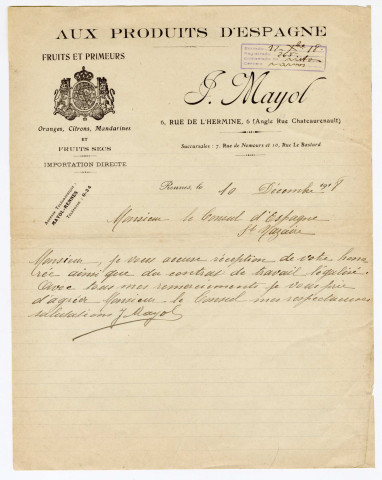 AUX PRODUITS D'ESPAGNE
FRUITS ET PRIMEURS
J. Mayol
6, RUE DE L'HERMINE, 6 (Angle Rue Chateaurenault)
Oranges, Citrons, Mandarines
ET
FRUITS SECS
Succursales : 7, Rue de Nemours et 10, Rue Le Bastard
IMPORTATION DIRECTE
MAYOL-RENNES
Rennes, le 10 Décembre 1918
Monsieur le Consul d'Espagne
St Nazaire
Monsieur, je vous accuse réception de votre hono
rée ainsi que du contrat de travail légalisé.
Avec tous mes remerciements je vous prie
d'agréer Monsieur le Consul mes respectueuses
salutations J. Mayol